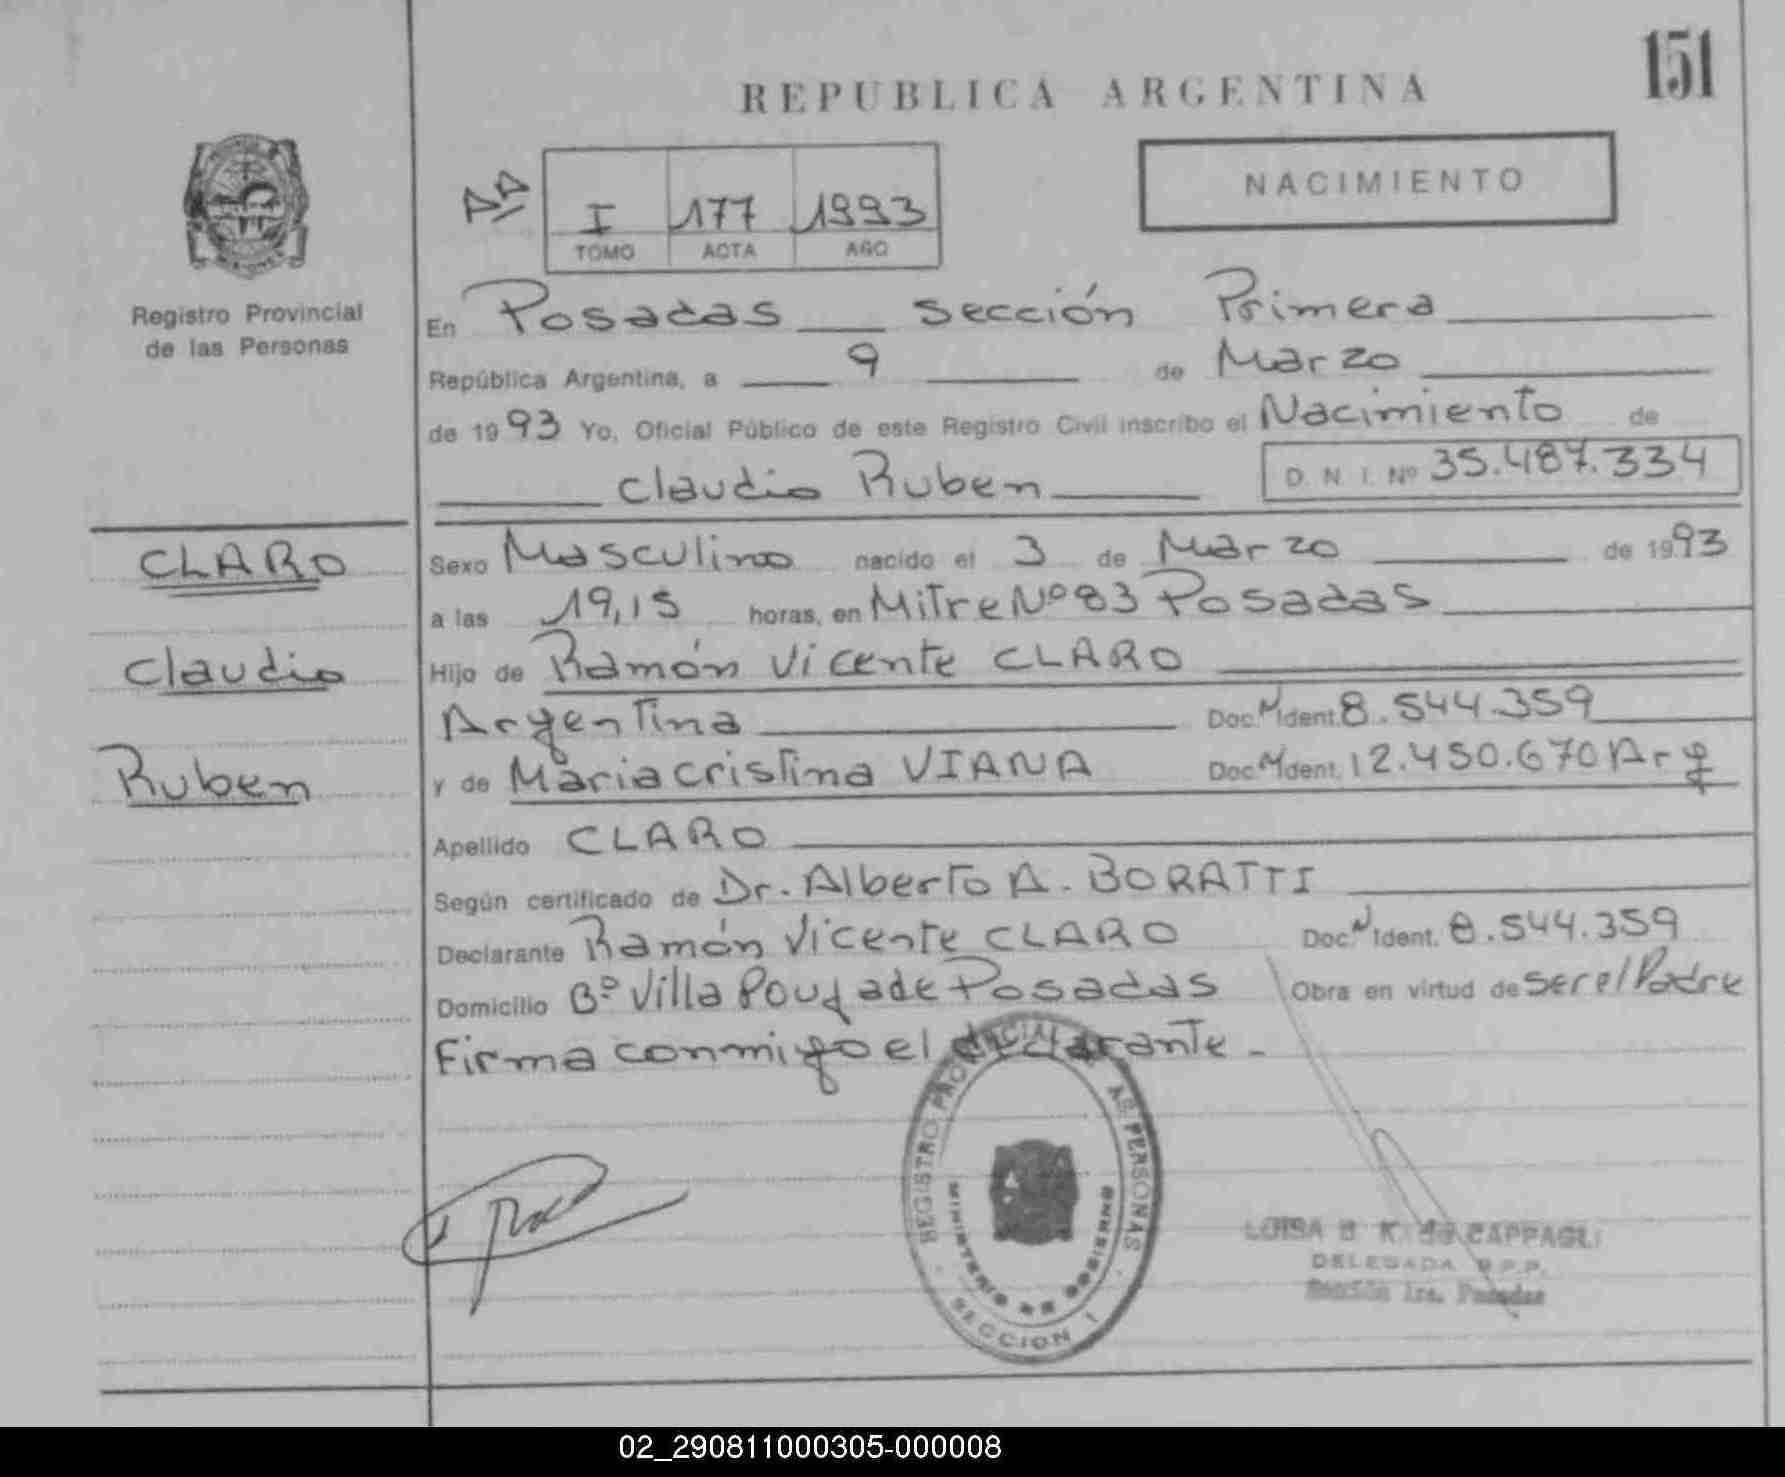 151
REPUBLICA ARGENTINA
NACIMIENTO
I 177 1993
TOMO ACTA AÑO
Registro Provincial
de las Personas
En Posadas sección Primera
República Argentina, a 9 de Marzo
de 1993 Yo, Oficial Público de este Registro Civil inscribo el Nacimiento de
Claudio Ruben D. N. I. Nº 35.487.334
CLARO
Claudio
Ruben
Sexo Masculino nacido el 3 de Marzo de 1993
a las 19,15 horas, en Mitre Nº 83 Posadas
Hijo de Ramón Vicente CLARO
Argentina Doc. N Ident. 8.544.359
y de Maria cristina VIANA Doc. N Ident. 12.450.670 Arg
Apellido CLARO
Según certificado de Dr. Alberto A. BORATTI
Declarante Ramón Vicente CLARO Doc. N Ident. 8.544.359
Domicilio Bº Villa Poujade Posadas Obra en virtud de ser el Padre
Firma conmigo el declarante.-
REGISTRO PROVINCIAL AS PERSONAS
MINISTERIO DE GOBIERNO
SECCION I
LUISA B K de CAPPAGLI
DELEGADA R.P.P.
Sección 1ra. Posadas
02_290811000305-000008